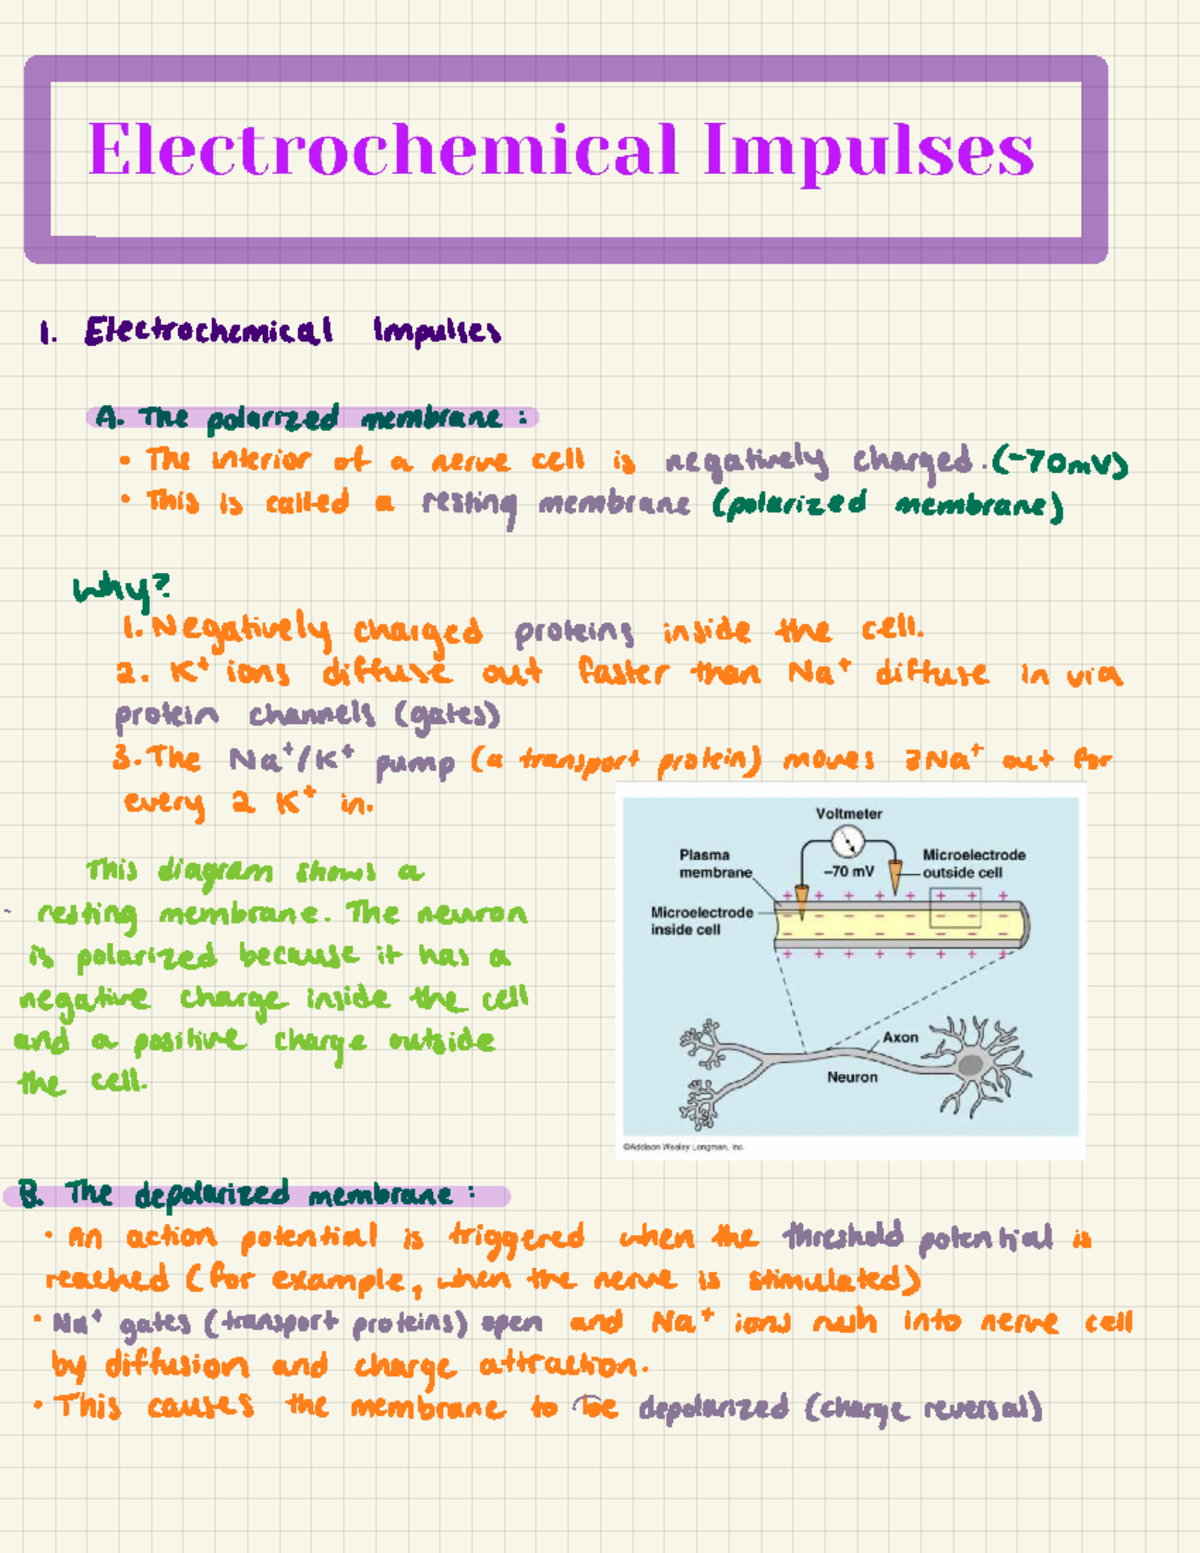 Electrochemical Impulses
1. Electrochemical Impulses
A. The polarized membrane:
• The interior of a nerve cell is negatively charged. (-70mV)
• This is called a resting membrane (polarized membrane)
Why?
1. Negatively charged proteins inside the cell.
2. K⁺ ions diffuse out faster than Na⁺ diffuse in via
protein channels (gates)
3. The Na⁺/K⁺ pump (a transport protein) moves 3Na⁺ out for
every 2 K⁺ in.
This diagram shows a
resting membrane. The neuron
is polarized because it has a
negative charge inside the cell
and a positive charge outside
the cell.
Voltmeter
Plasma
membrane
-70 mV
Microelectrode
outside cell
Microelectrode
inside cell
+ + + + + + + +
− − − − − − − −
− − − − − − − −
+ + + + + + + +
Axon
Neuron
©Addison Wesley Longman, Inc.
B. The depolarized membrane:
• An action potential is triggered when the threshold potential is
reached (for example, when the nerve is stimulated)
• Na⁺ gates (transport proteins) open and Na⁺ ions rush into nerve cell
by diffusion and charge attraction.
• This causes the membrane to be depolarized (charge reversal)